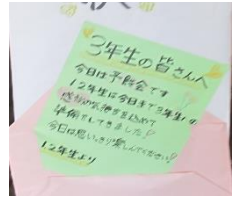 3年生の皆さんへ
今日は予餞会です
1.2年生は今日まで3年生の
感謝の気持を込めて
準備をしてきました!
今日は思いっきり楽しんでください!
1.2年生より